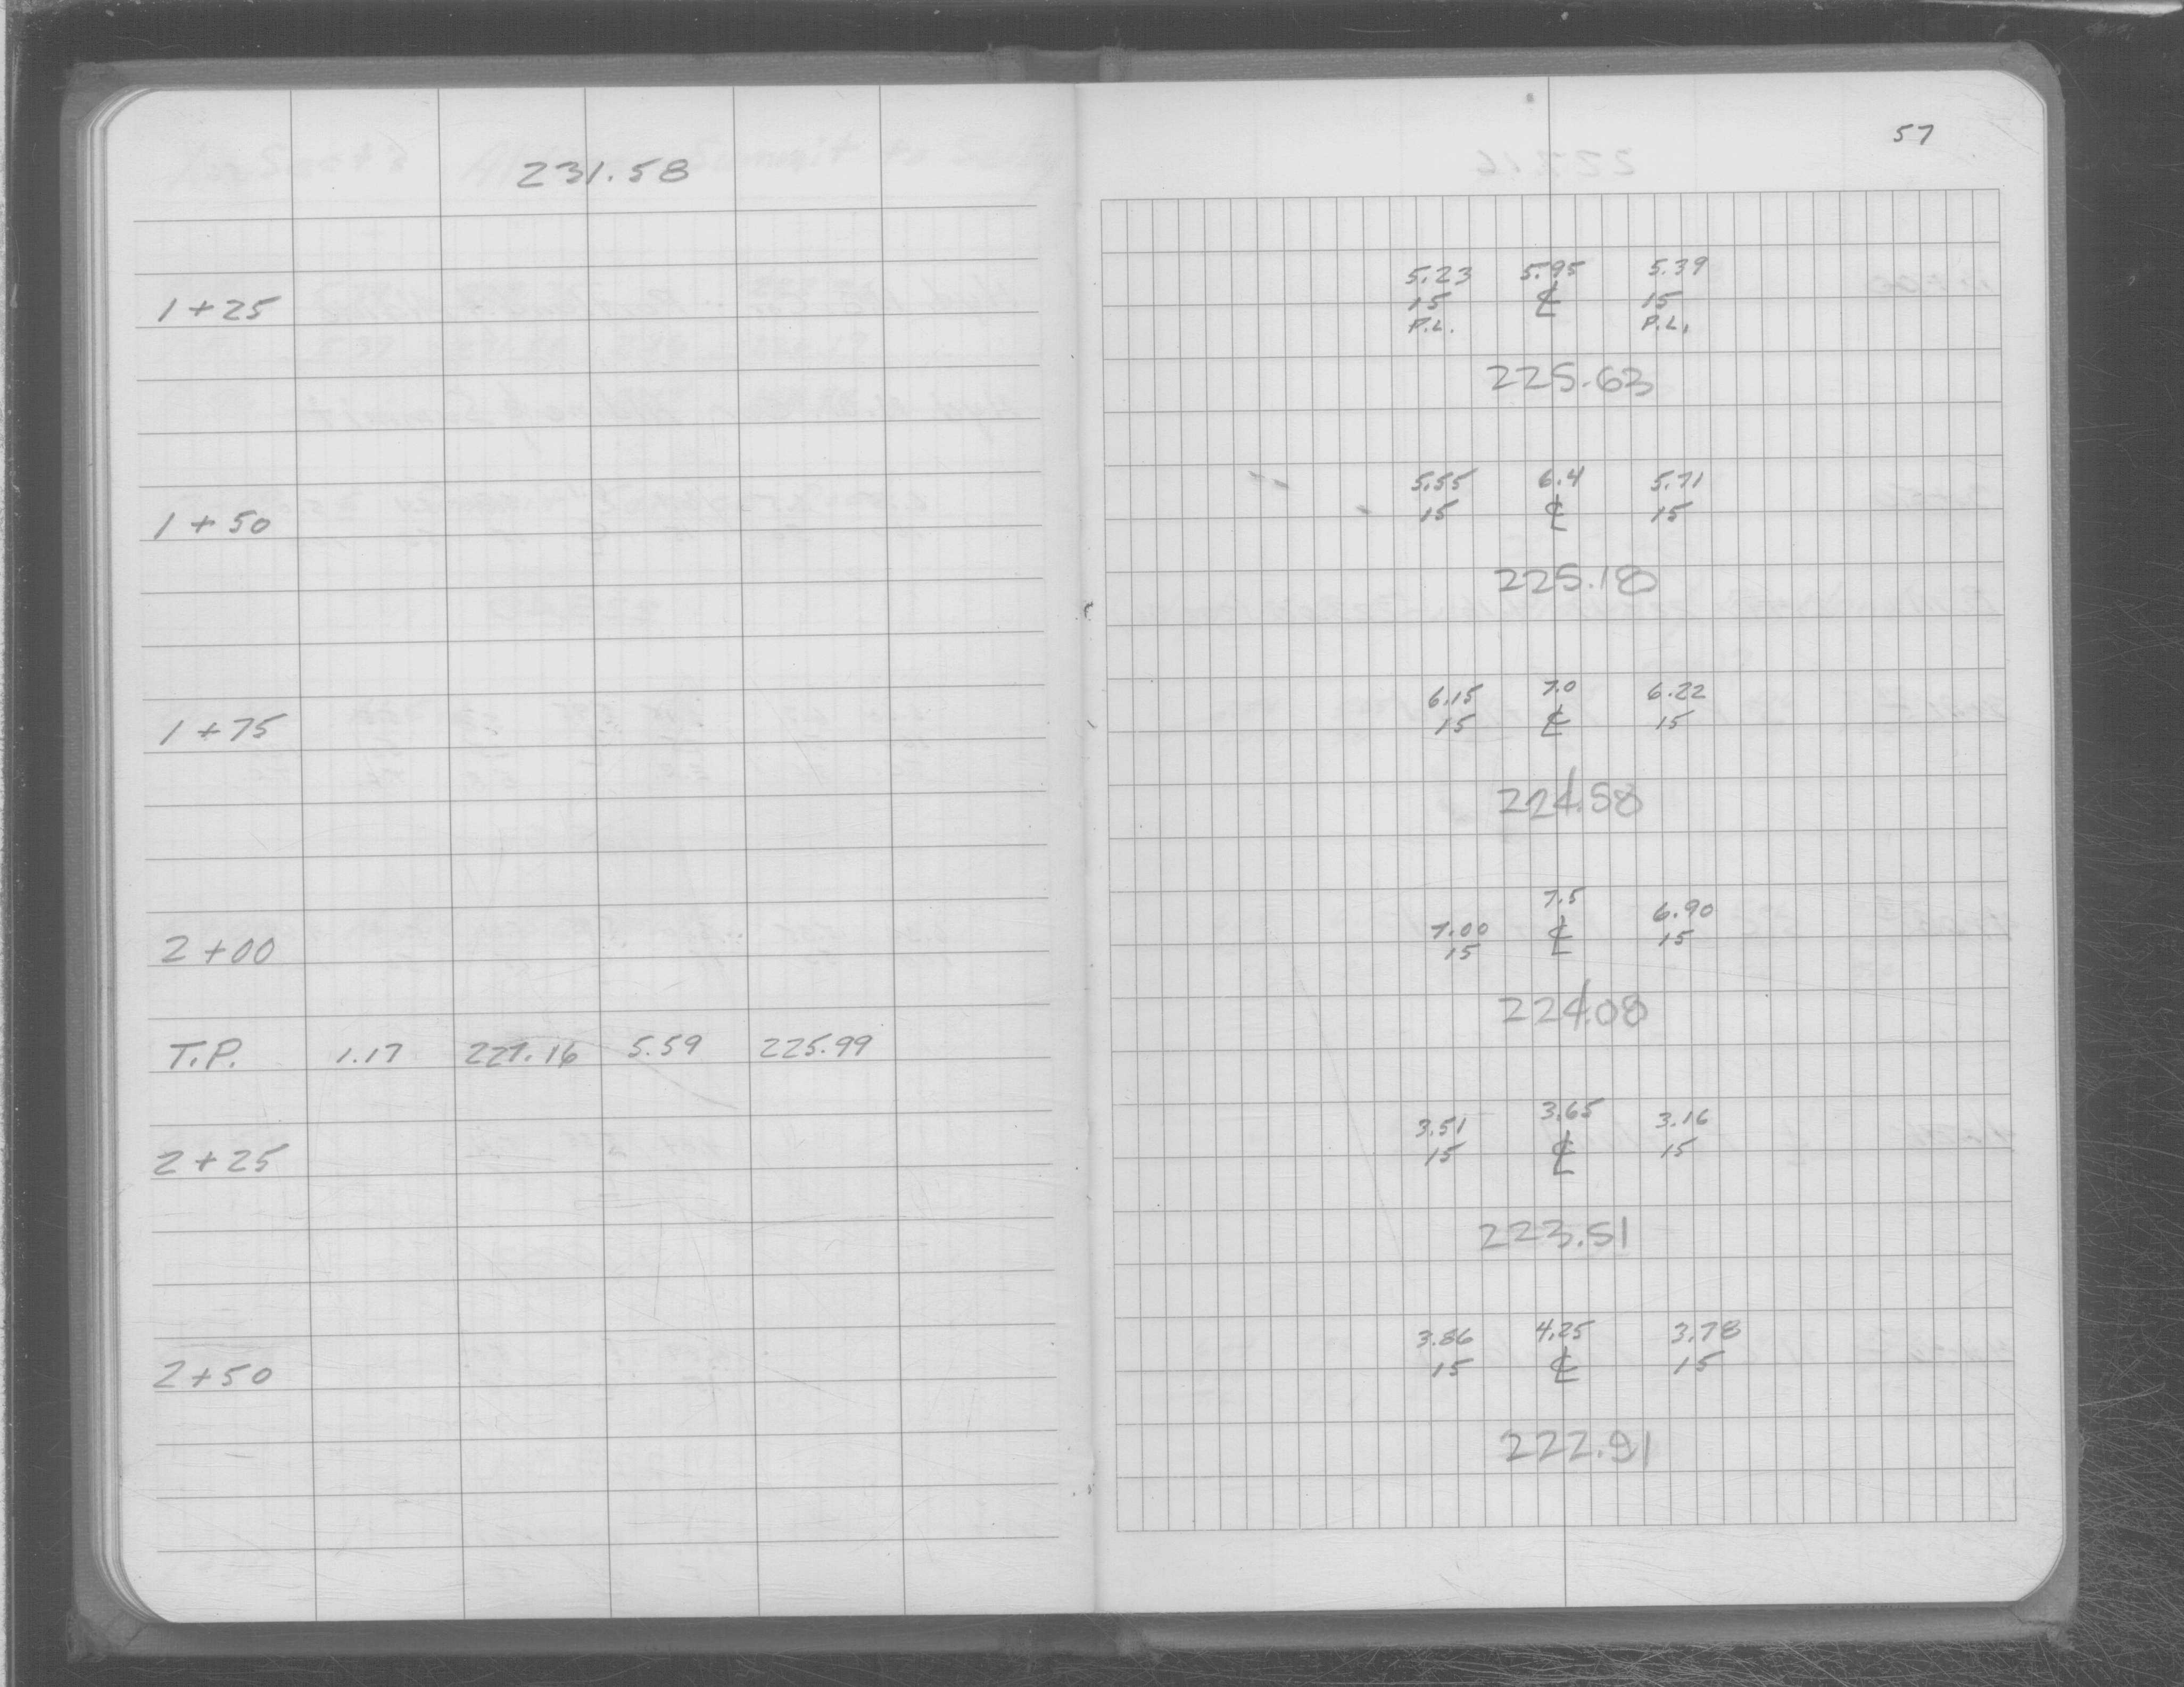 231.58
57
5.23 5.95 5.39
1+25 15 ℄ 15
P.L. P.L.
225.63
5.55 6.4 5.71
1+50 15 ℄ 15
225.18
6.15 7.0 6.22
1+75 15 ℄ 15
224.58
7.5 6.90
2+00 7.00 ℄ 15
15
224.08
T.P. 1.17 227.16 5.59 225.99
3.51 3.65 3.16
2+25 15 ℄ 15
223.51
3.86 4.25 3.78
2+50 15 ℄ 15
222.91